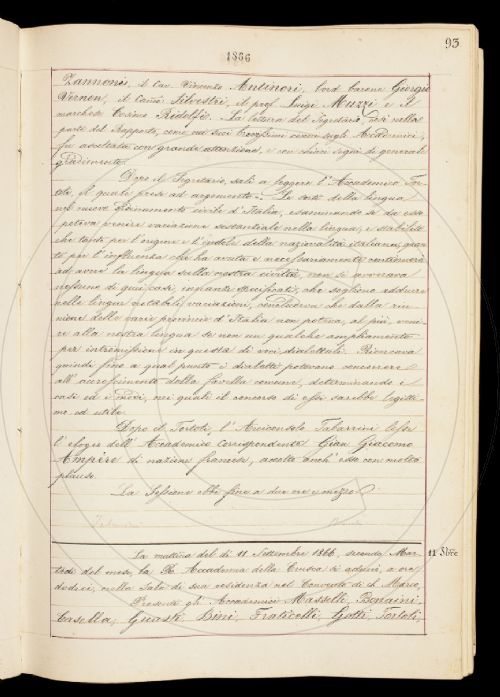 93
1866
Zannoni, il Cav. Vincenzo Antinori, lord barone Giorgio
Vernon, il Canco Silvestri, il prof. Luigi Muzzi e il
marchese Cosimo Ridolfi. La lettura del Segretario, così nella
parte del Rapporto, come nei brevissimi cenni degli Accademici,
fu ascoltata con grande attenzione, e con chiari segni di generale
gradimento.
Dopo il Segretario, salì a leggere l'Accademico Tor-
toli, il quale prese ad argomento: Le sorti della lingua
nel nuovo ordinamento civile d'Italia, esaminando se da esso
poteva venire variazione sostanziale nella lingua, e stabilito
che tanto per l'origine e l'indole della nazionalità italiana, quan-
to per l'influenza che ha avuta e necessariamente continuerà
ad avere la lingua sulla nostra civiltà, non si avverava
nessuno di quei casi, che sogliono addurre
nelle lingue notabili variazioni, concludeva che dalla riu-
nione delle varie provincie d'Italia non poteva, al più, veni-
re alla nostra lingua se non un qualche ampliamento
per intromissione in questa di voci dialettali. Ricercava
quindi fino a qual punto i dialetti potevano concorrere
all'accrescimento della favella comune, determinando i
casi ed i modi, nei quali il concorso di essi sarebbe legitti-
mo ed utile.
Dopo il Tortoli, l'Arciconsolo Tabarrini lesse
l'elogio dell'Accademico corrispondente Gian Giacomo
Ampère di nazione francese, accolto anch'esso con molto
plauso.
La Sessione ebbe fine a due ore e mezzo.
La mattina del dì 11 Settembre 1866, secondo Mar-
11 Sbre
tedì del mese, la R. Accademia della Crusca si adunò, a ore
dodici, nella Sala di sua residenza nel Convento di S. Marco,
Presenti gli Accademici Masselli, Bonaini,
Casella, Guasti, Bini, Fraticelli, Gotti, Tortoli,